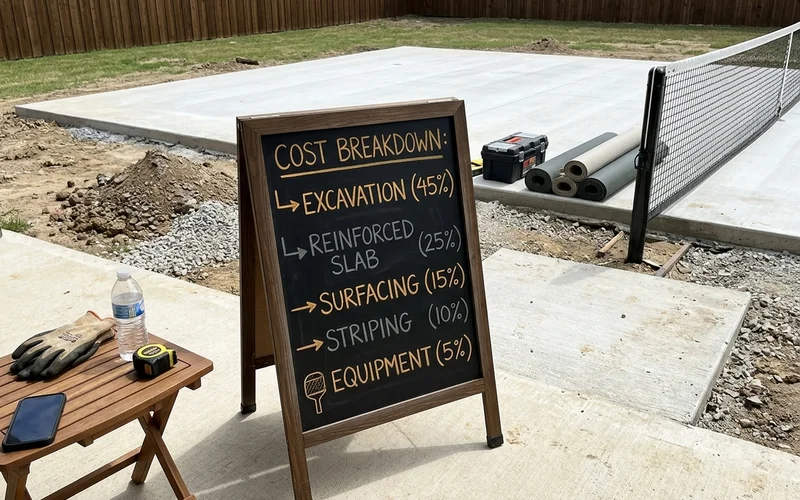 COST BREAKDOWN:
EXCAVATION (45%)
REINFORCED
SLAB (25%)
SURFACING (15%)
STRIPING (10%)
EQUIPMENT (5%)